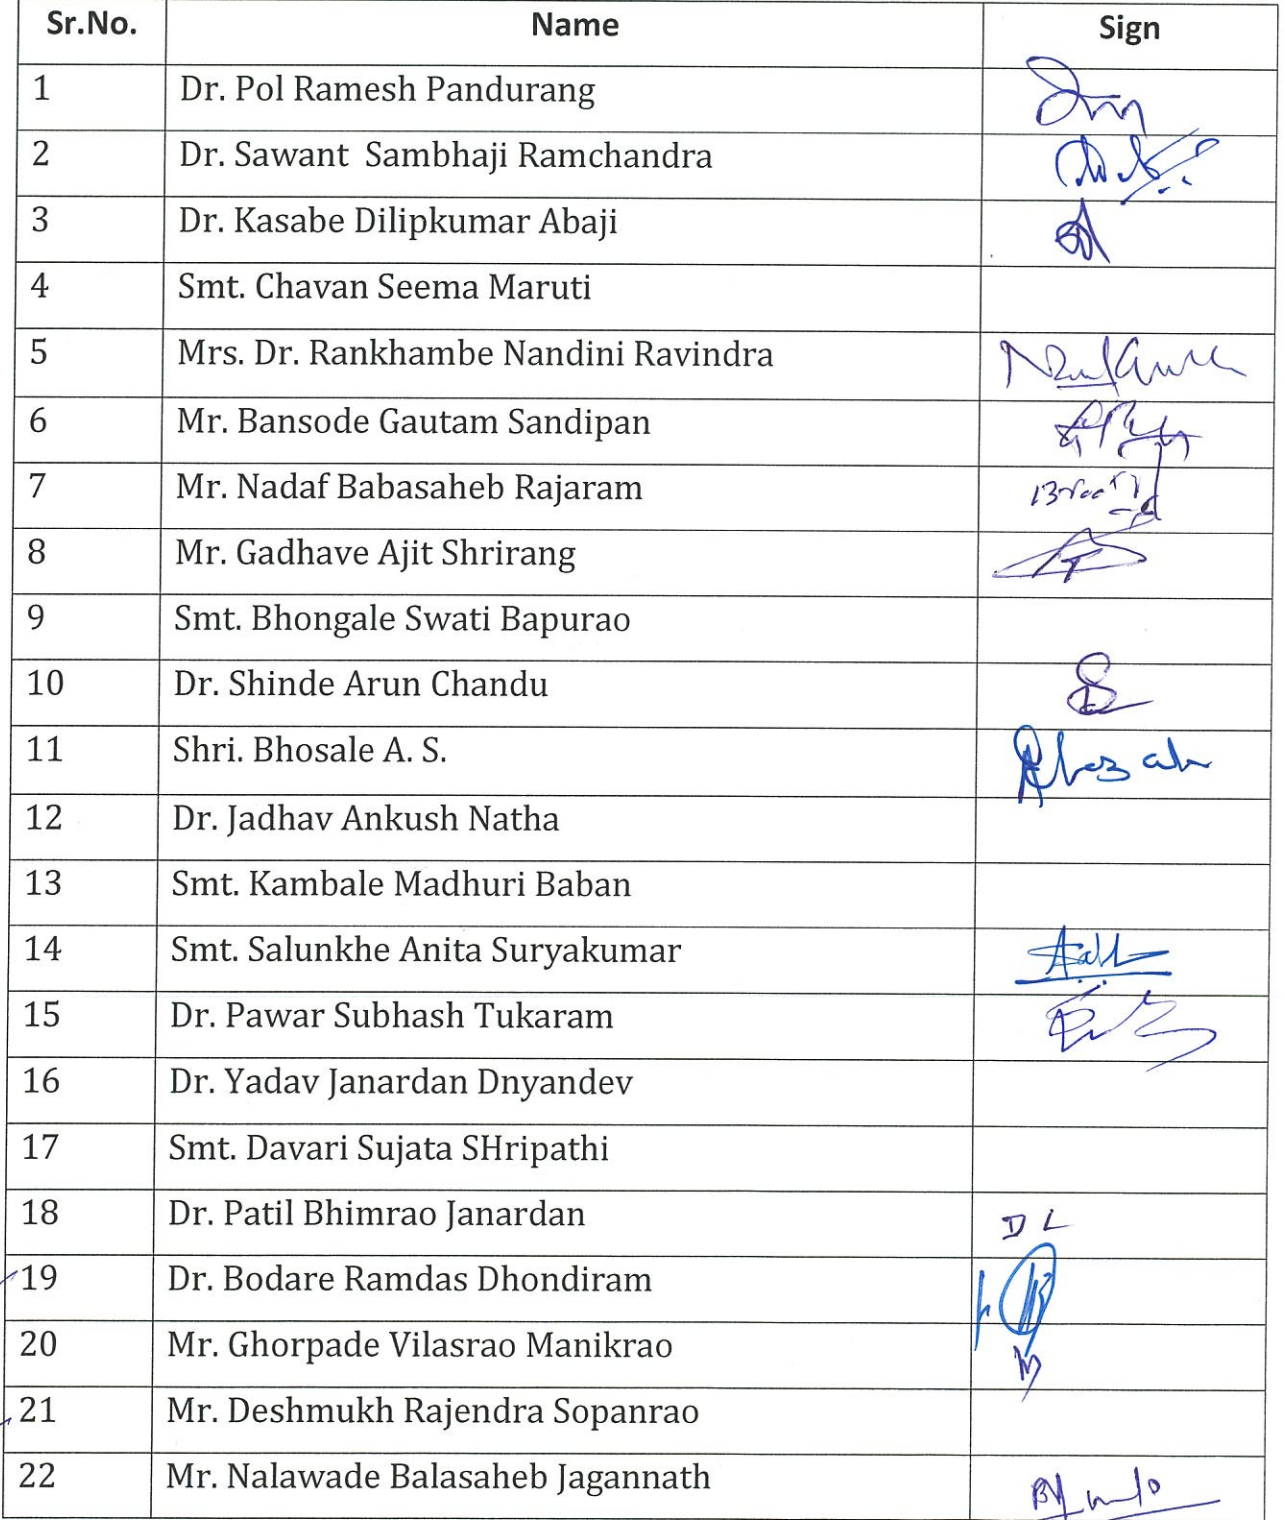 Sr.No. Name Sign
1 Dr. Pol Ramesh Pandurang
2 Dr. Sawant Sambhaji Ramchandra
3 Dr. Kasabe Dilipkumar Abaji
4 Smt. Chavan Seema Maruti
5 Mrs. Dr. Rankhambe Nandini Ravindra
6 Mr. Bansode Gautam Sandipan
7 Mr. Nadaf Babasaheb Rajaram
8 Mr. Gadhave Ajit Shrirang
9 Smt. Bhongale Swati Bapurao
10 Dr. Shinde Arun Chandu
11 Shri. Bhosale A. S.
12 Dr. Jadhav Ankush Natha
13 Smt. Kambale Madhuri Baban
14 Smt. Salunkhe Anita Suryakumar
15 Dr. Pawar Subhash Tukaram
16 Dr. Yadav Janardan Dnyandev
17 Smt. Davari Sujata SHripathi
18 Dr. Patil Bhimrao Janardan D L
19 Dr. Bodare Ramdas Dhondiram
20 Mr. Ghorpade Vilasrao Manikrao
21 Mr. Deshmukh Rajendra Sopanrao
22 Mr. Nalawade Balasaheb Jagannath